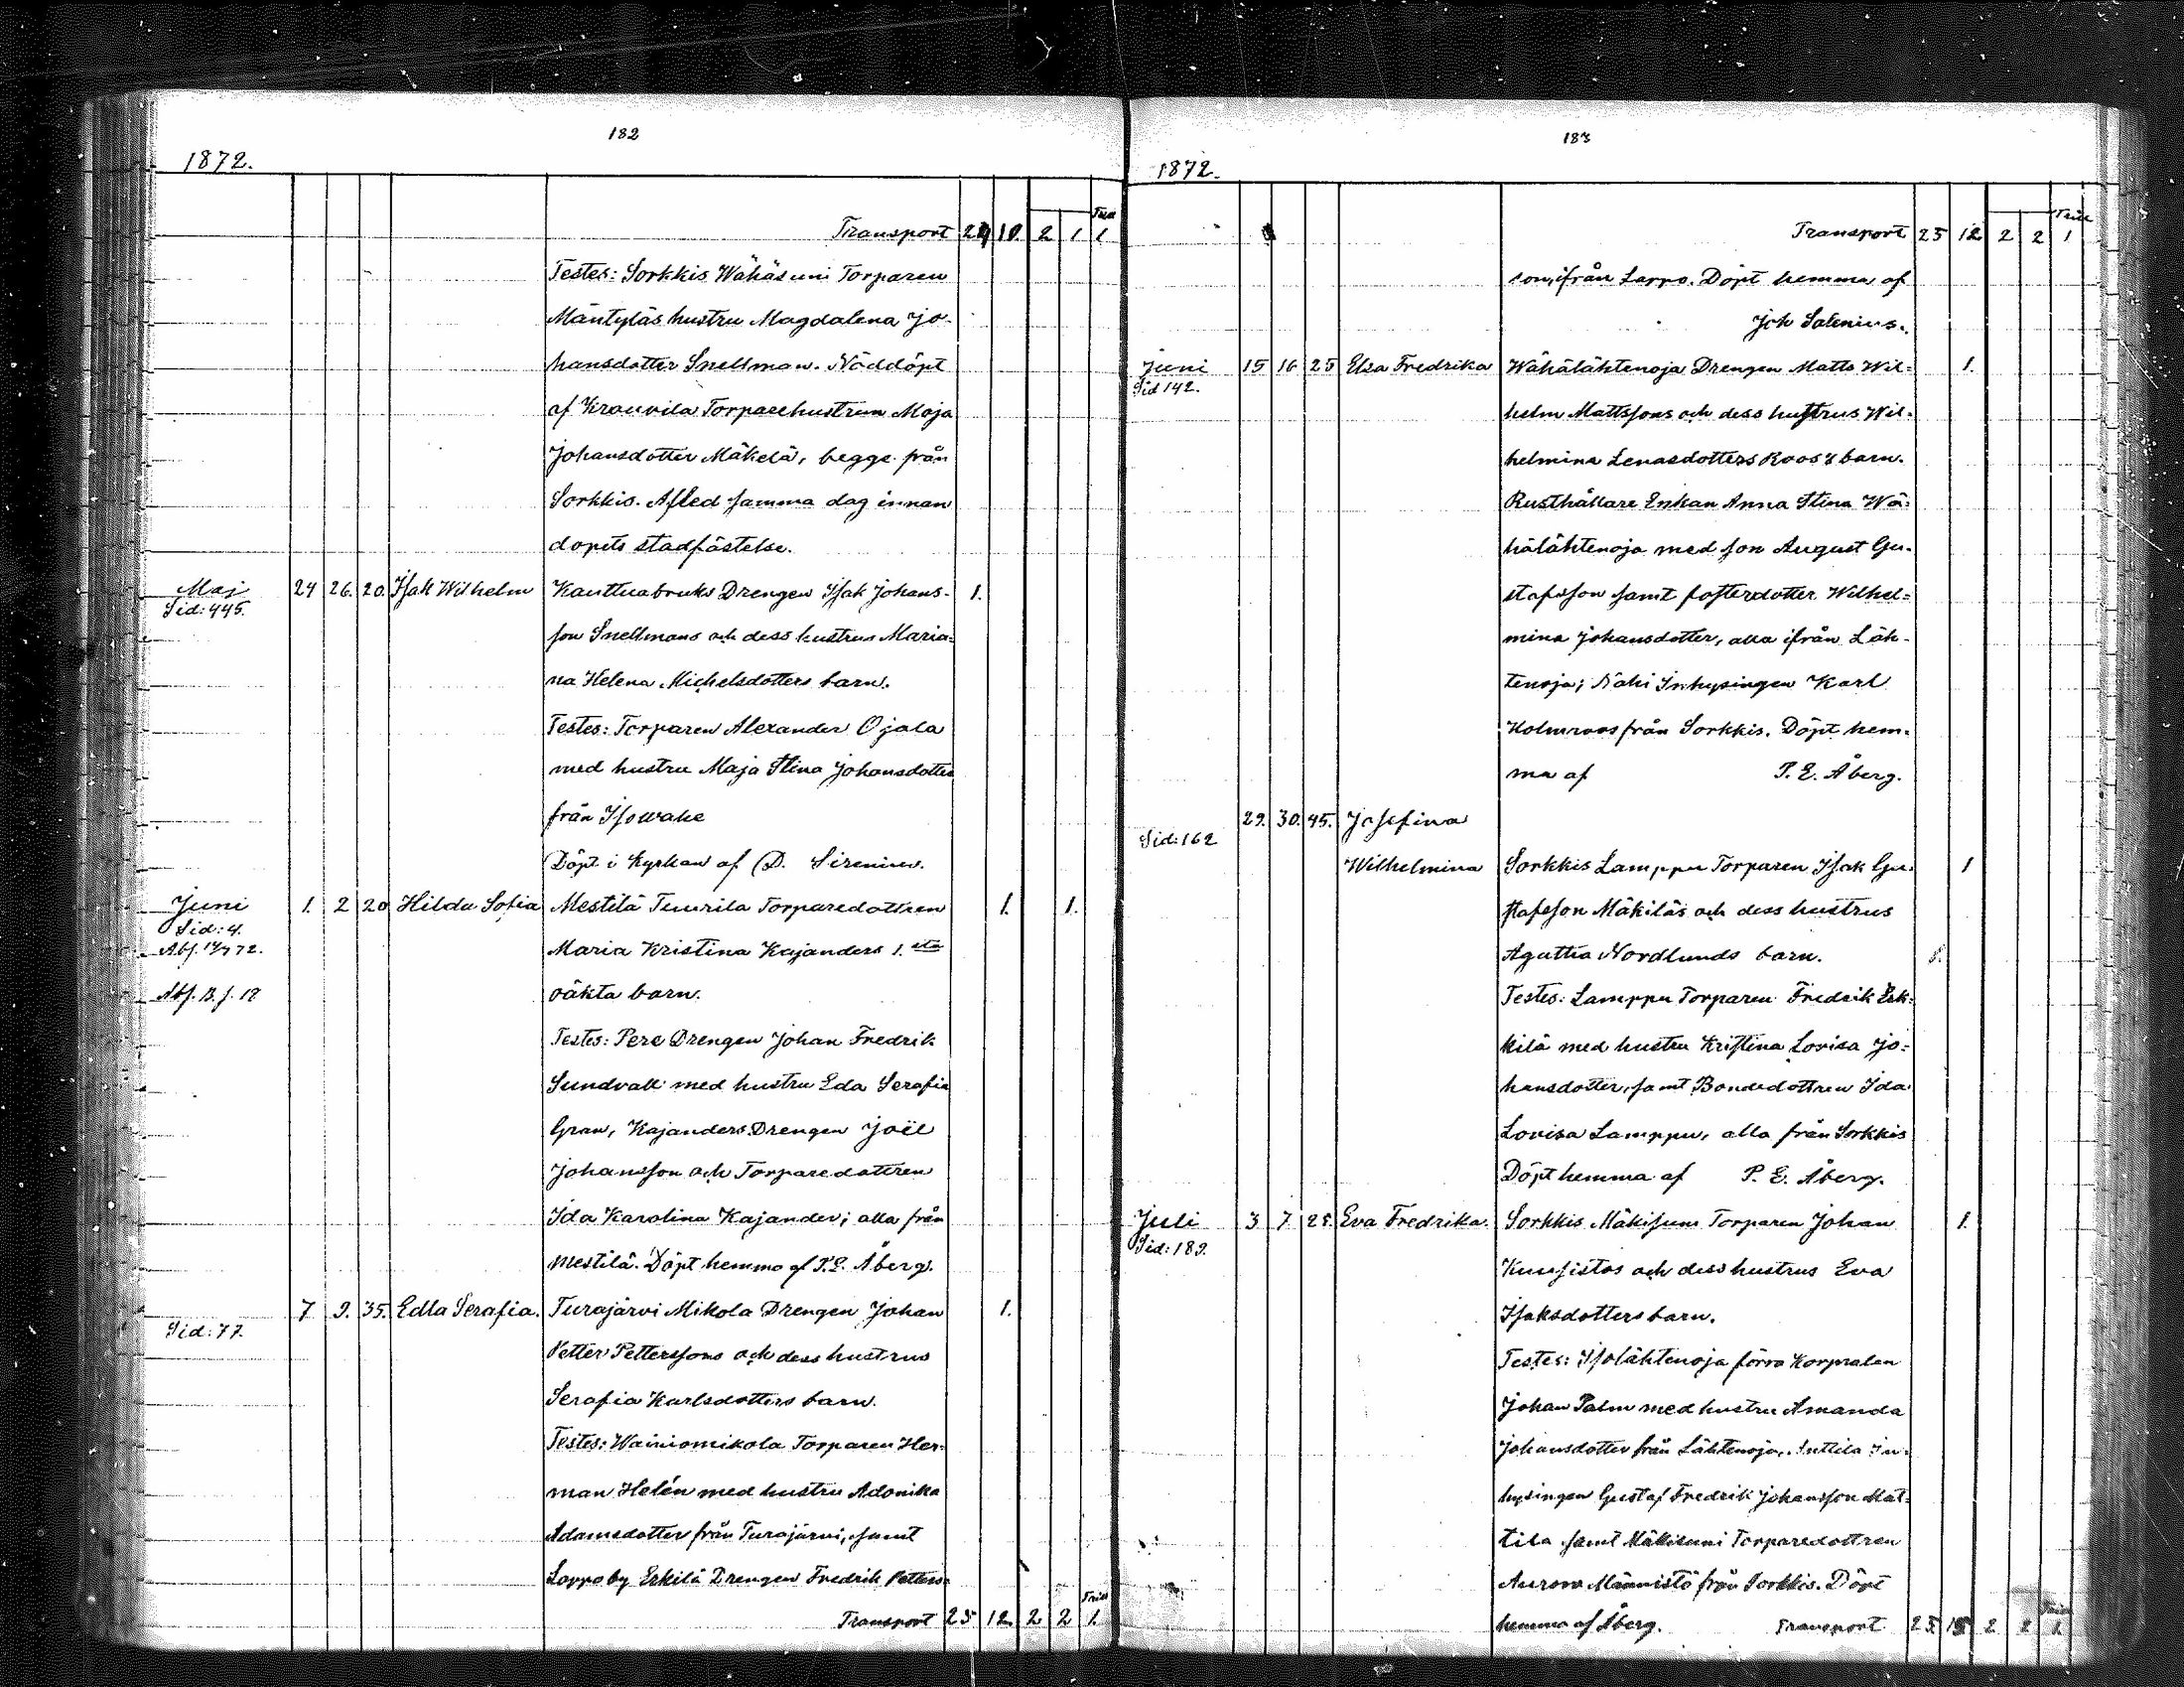 182
1872.
Transport 24 10. 2 1 1
Testes: Sorkkis Wähäsuni Torparen
Mäntyläs hustru Magdalena Jo-
hansdotter Snellman. Nöddöpt
af Krouvila Torparehustrun Maja
Johansdotter Mäkelä, begge från
Sorkkis. Afled samma dag innan
dopets stadfästelse.
Maj 24 26. 20. Isak Wilhelm Kauttuabruks Drengen Isak Johans- 1.
Sid: 445.
son Snellmans och dess hustrus Maria-
na Helena Michelsdotters barn.
Testes: Torparen Alexander Ojala
med hustru Maja Stina Johansdotter
från Isowake
Döpt i Kyrkan af D. Sirenius.
Juni 1. 2 20 Hilda Sofia Mestilä Tuurila Torparedottren 1. 1.
Sid: 4.
Maria Kristina Kajanders 1. sta
oäkta barn.
Testes: Pere Drengen Johan Fredrik
Sundvall med hustru Eda Serafia
Gran, Kajanders Drengen Joël
Johansson och Torparedottren
Ida Karolina Kajander; alla från
Mestilä. Döpt hemma af P.E. Åberg.
7 9. 35. Edla Serafia. Turajärvi Mikola Drengen Johan 1.
Sid: 77.
Petter Petterssons och dess hustrus
Serafia Karlsdotters barn.
Testes: Wainiomikola Torparen Her-
man Helén med hustru Adonika
Adamsdotter från Turajärvi, samt
Lappoby Erkilä Drengen Fredrik Petters-
Transport 25 12. 2 2 1.
183
1872.
Transport 25 12 2 2 1
son, ifrån Lappo. Döpt hemma af
Joh Salenius.
Juni 15 16 25 Elsa Fredrika Wähälähtenoja Drengen Matts Wil= 1.
Sid 142.
helm Mattssons och dess hustrus Wil-
helmina Lenasdotters Roos's barn.
Rusthållare Enkan Anna Stina Wä-
hälähtenoja med son August Gu-
stafsson samt fosterdotter Wilhel=
mina Johansdotter, alla ifrån Läh-
tenoja; Nahi Inhysingen Karl
Holmroos från Sorkkis. Döpt hem-
ma af P. E. Åberg.
29. 30. 45. Josefina
Sid: 162
Wilhelmina Sorkkis Lamppu Torparen Isak Gu- 1
stafsson Mäkiläs och dess hustrus
Agatha Nordlunds barn.
Testes: Lamppu Torparen Fredrik Erk-
kilä med hustru Kristina Lovisa Jo=
hansdotter, samt Bondedottren Ida
Lovisa Lamppu, alla från Sorkkis
Döpt hemma af P. E. Åberg.
Juli 3 7 25. Eva Fredrika. Sorkkis Mäkisuni Torparen Johan 1.
Sid: 189.
Kuusistos och dess hustrus Eva
Isaksdotters barn.
Testes: Isolähtenoja förra Korpralen
Johan Palm med hustru Amanda
Johansdotter från Lähtenoja, Inttila In-
hysingen Gustaf Fredrik Johansson Mat-
tila samt Mäkisuni Torparedottren
Aurora Männistö från Sorkkis. Döpt
hemma af Åberg. Transport 25. 15 2 2 1.